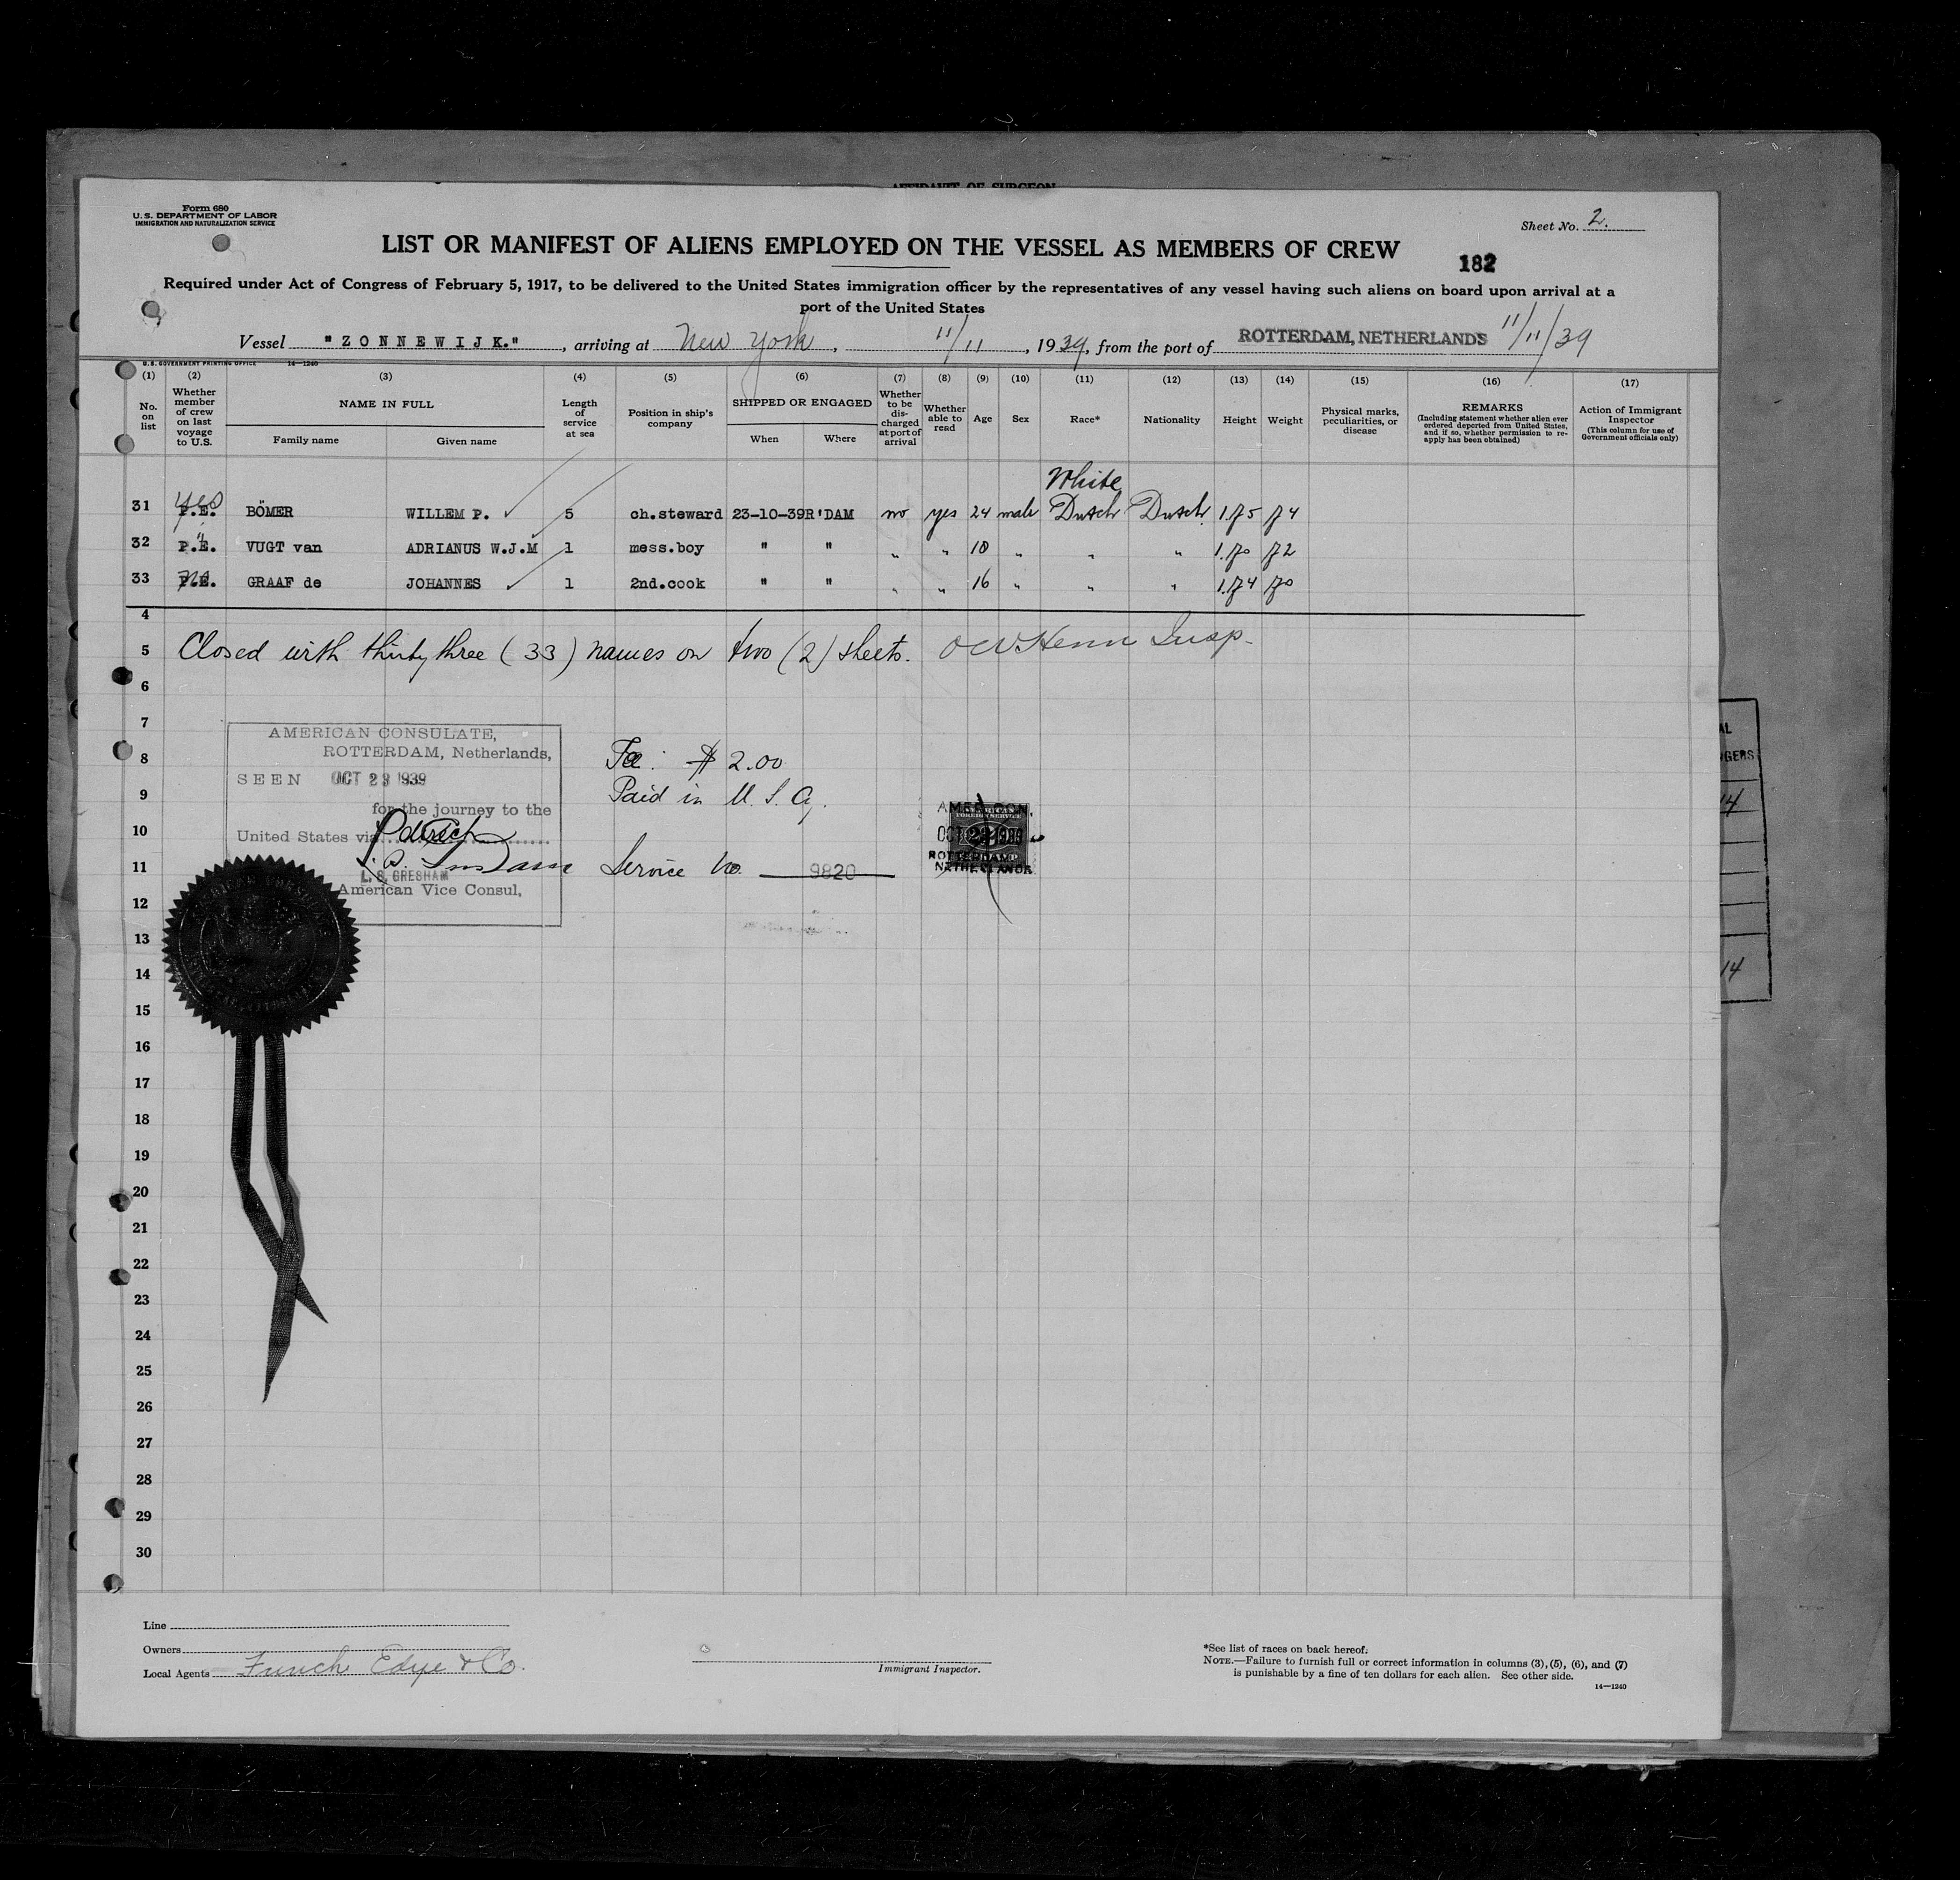 AFFIDAVIT OF SURGEON
Form 680
U. S. DEPARTMENT OF LABOR
IMMIGRATION AND NATURALIZATION SERVICE
Sheet No. 2.
LIST OR MANIFEST OF ALIENS EMPLOYED ON THE VESSEL AS MEMBERS OF CREW
182
Required under Act of Congress of February 5, 1917, to be delivered to the United States immigration officer by the representatives of any vessel having such aliens on board upon arrival at a
port of the United States
Vessel "ZONNEWIJK.", arriving at New York, 11/11, 1939, from the port of ROTTERDAM, NETHERLANDS 11/11/39
U. S. GOVERNMENT PRINTING OFFICE 14—1240
(1) (2) (3) (4) (5) (6) (7) (8) (9) (10) (11) (12) (13) (14) (15) (16) (17)
No. on list
Whether member of crew on last voyage to U.S.
NAME IN FULL
Family name
Given name
Length of service at sea
Position in ship's company
SHIPPED OR ENGAGED
When
Where
Whether to be discharged at port of arrival
Whether able to read
Age
Sex
Race*
Nationality
Height
Weight
Physical marks, peculiarities, or disease
REMARKS
(Including statement whether alien ever ordered deported from United States, and if so, whether permission to reapply has been obtained)
Action of Immigrant Inspector
(This column for use of Government officials only)
White
31 yes P.E. BÖMER WILLEM P. 5 ch.steward 23-10-39 R'DAM no yes 24 male Dutch Dutch 1.75 74
32 " P.E. VUGT van ADRIANUS W.J.M 1 mess.boy " " " " 18 " " " 1.70 72
33 no P.E. GRAAF de JOHANNES 1 2nd.cook " " " " 16 " " " 1.74 70
4
5 Closed with thirty three (33) names on two (2) sheets. Insp.
6
7
AMERICAN CONSULATE,
ROTTERDAM, Netherlands,
8 Fee: $ 2.00
SEEN OCT 23 1939
9 Paid in U. S. A.
for the journey to the
10
United States via
11 Service No. 9820
L. S. GRESHAM
American Vice Consul.
AMER. CON.
FOREIGN SERVICE
OCT 23 1939
ROTTERDAM
NETHERLANDS
12
13
14
15
16
17
18
19
20
21
22
23
24
25
26
27
28
29
30
Line
Owners
Local Agents Funch Edye & Co.
Immigrant Inspector.
*See list of races on back hereof.
NOTE.—Failure to furnish full or correct information in columns (3), (5), (6), and (7)
is punishable by a fine of ten dollars for each alien. See other side.
14—1240